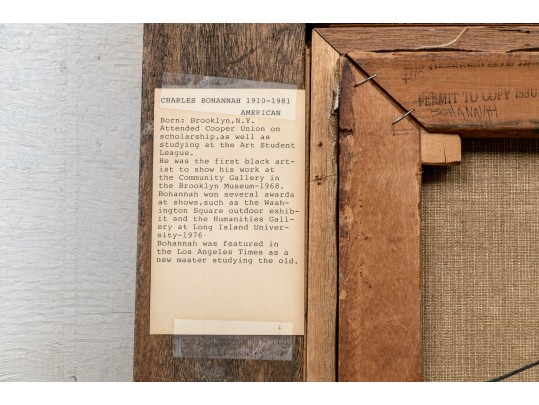 CHARLES BOHANNAH 1910-1981
AMERICAN
Born: Brooklyn,N.Y.
Attended Cooper Union on
scholarship,as well as
studying at the Art Student
League.
He was the first black art-
ist to show his work at
the Community Gallery in
the Brooklyn Museum-1968.
Bohannah won several awards
at shows,such as the Wash-
ington Square outdoor exhib-
it and the Humanities Gall-
ery at Long Island Univer-
sity-1976.
Bohannah was featured in
the Los Angeles Times as a
new master studying the old.
PERMIT TO COPY
BOHANNAH